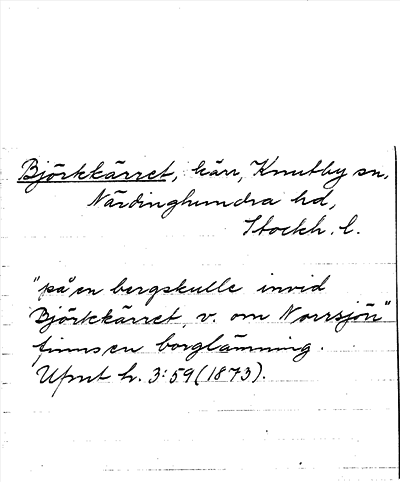 Björkkärret, kärr, Knutby sn,
Närdinghundra hd,
Stockh. l.
"på en bergskulle invid
Björkkärret, v. om Norrsjön"
finns en borglämning.
Ufmt h. 3:59 (1873).